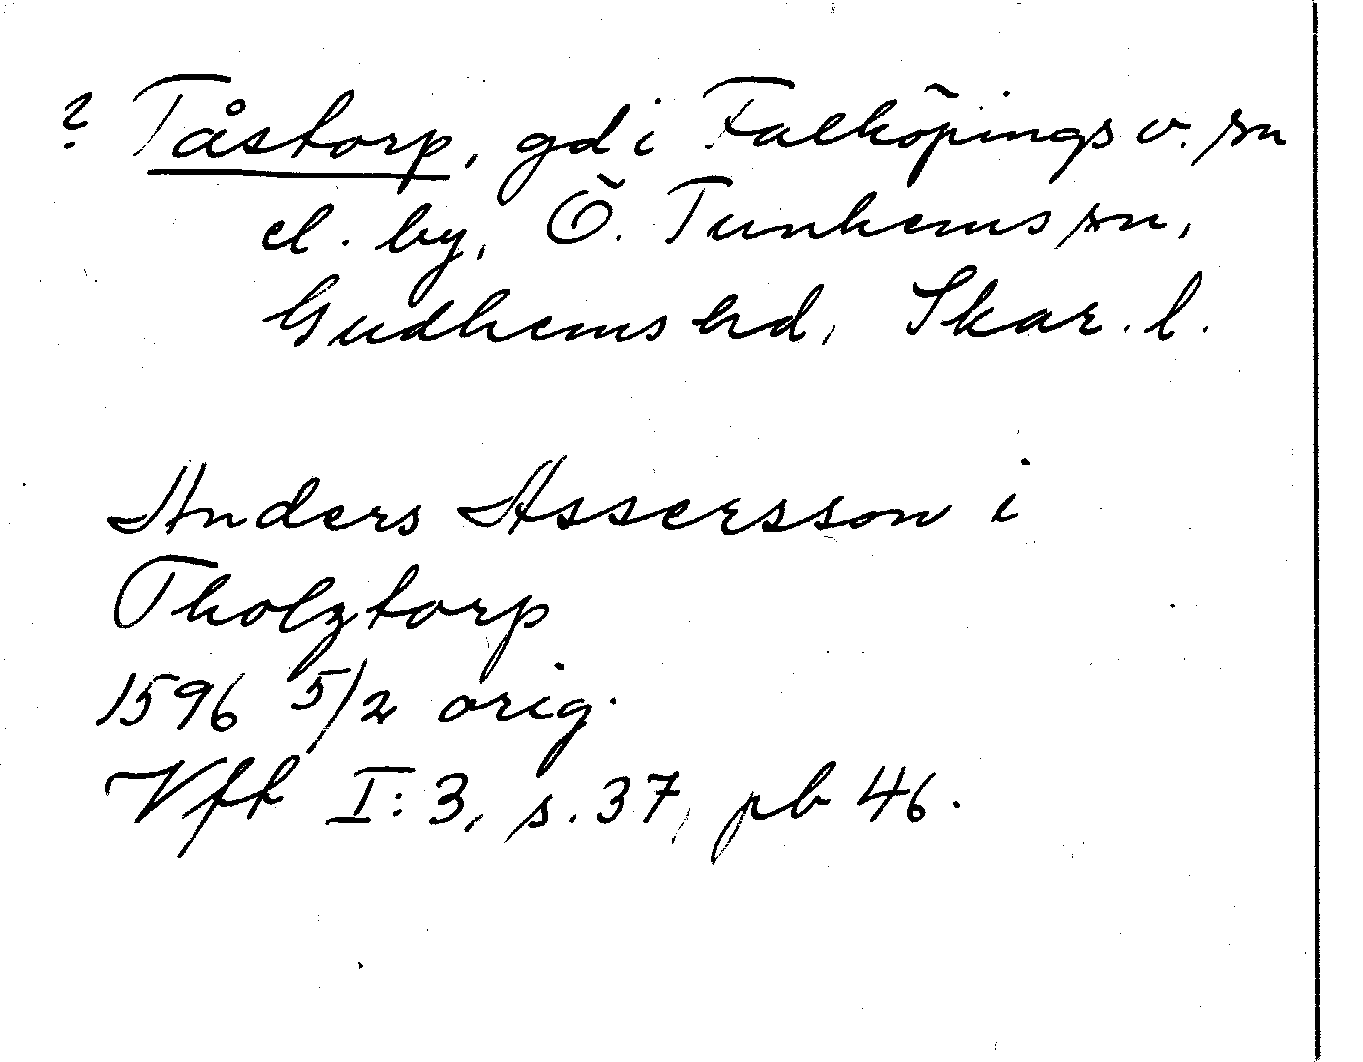 ? Tåstorp, gd i Falköpings v. sn
el. by, Ö. Tunhems sn,
Gudhems hd, Skar. l.
Anders Assersson i
Tholztorp
1596 5/2 orig.
Vfh I:3, s. 37, pb 46.